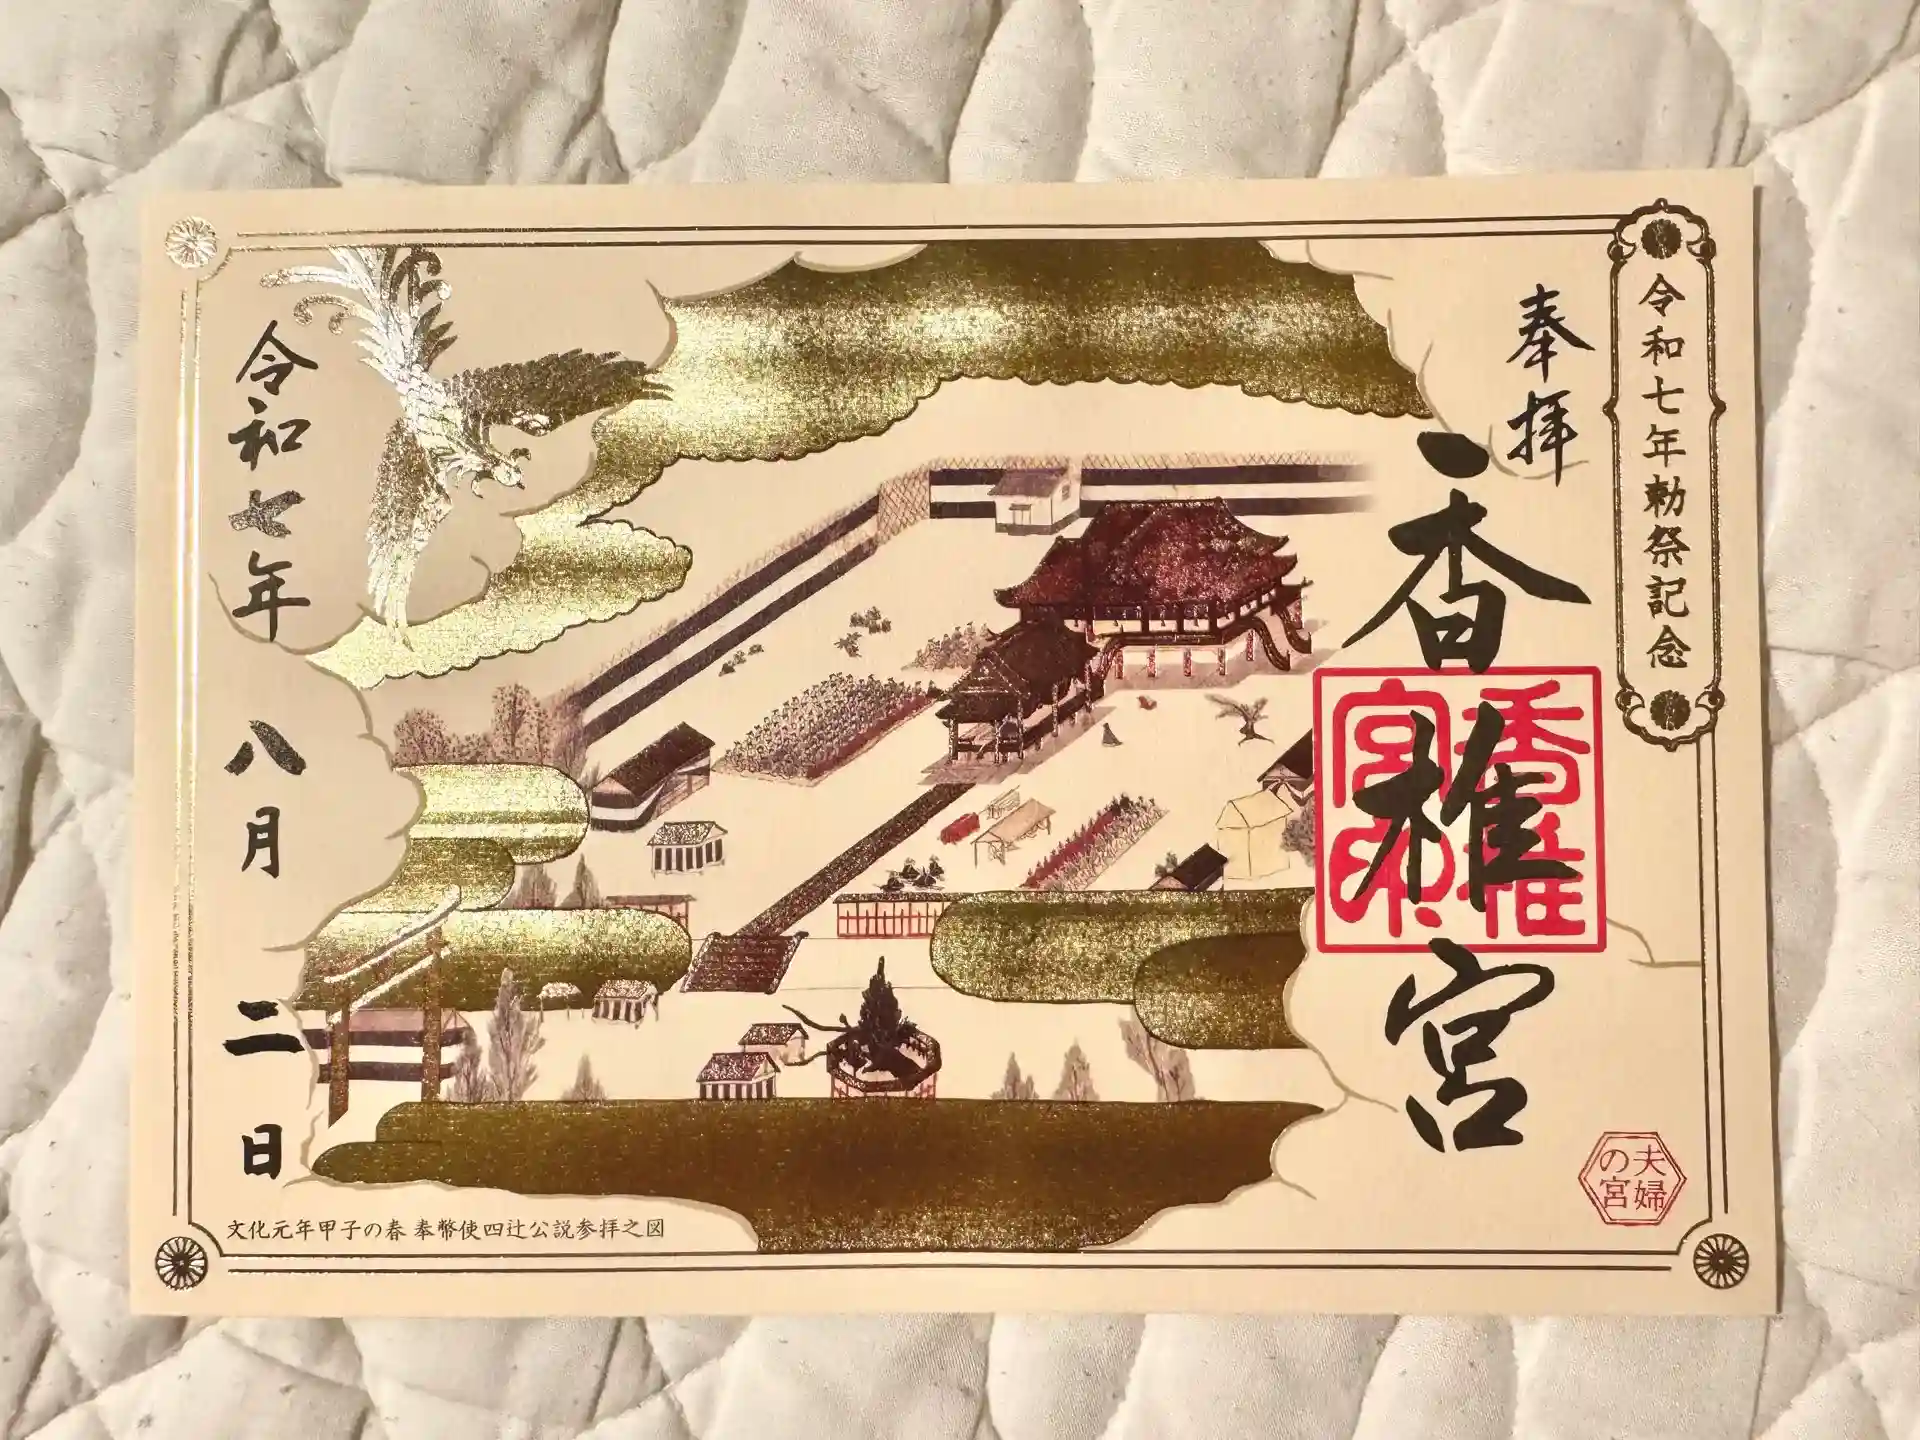 令和七年勅祭記念
奉拝
香椎宮
香椎
宮印
夫婦
の宮
令和七年 八月 二日
文化元年甲子の春 奉幣使四辻公説参拝之図